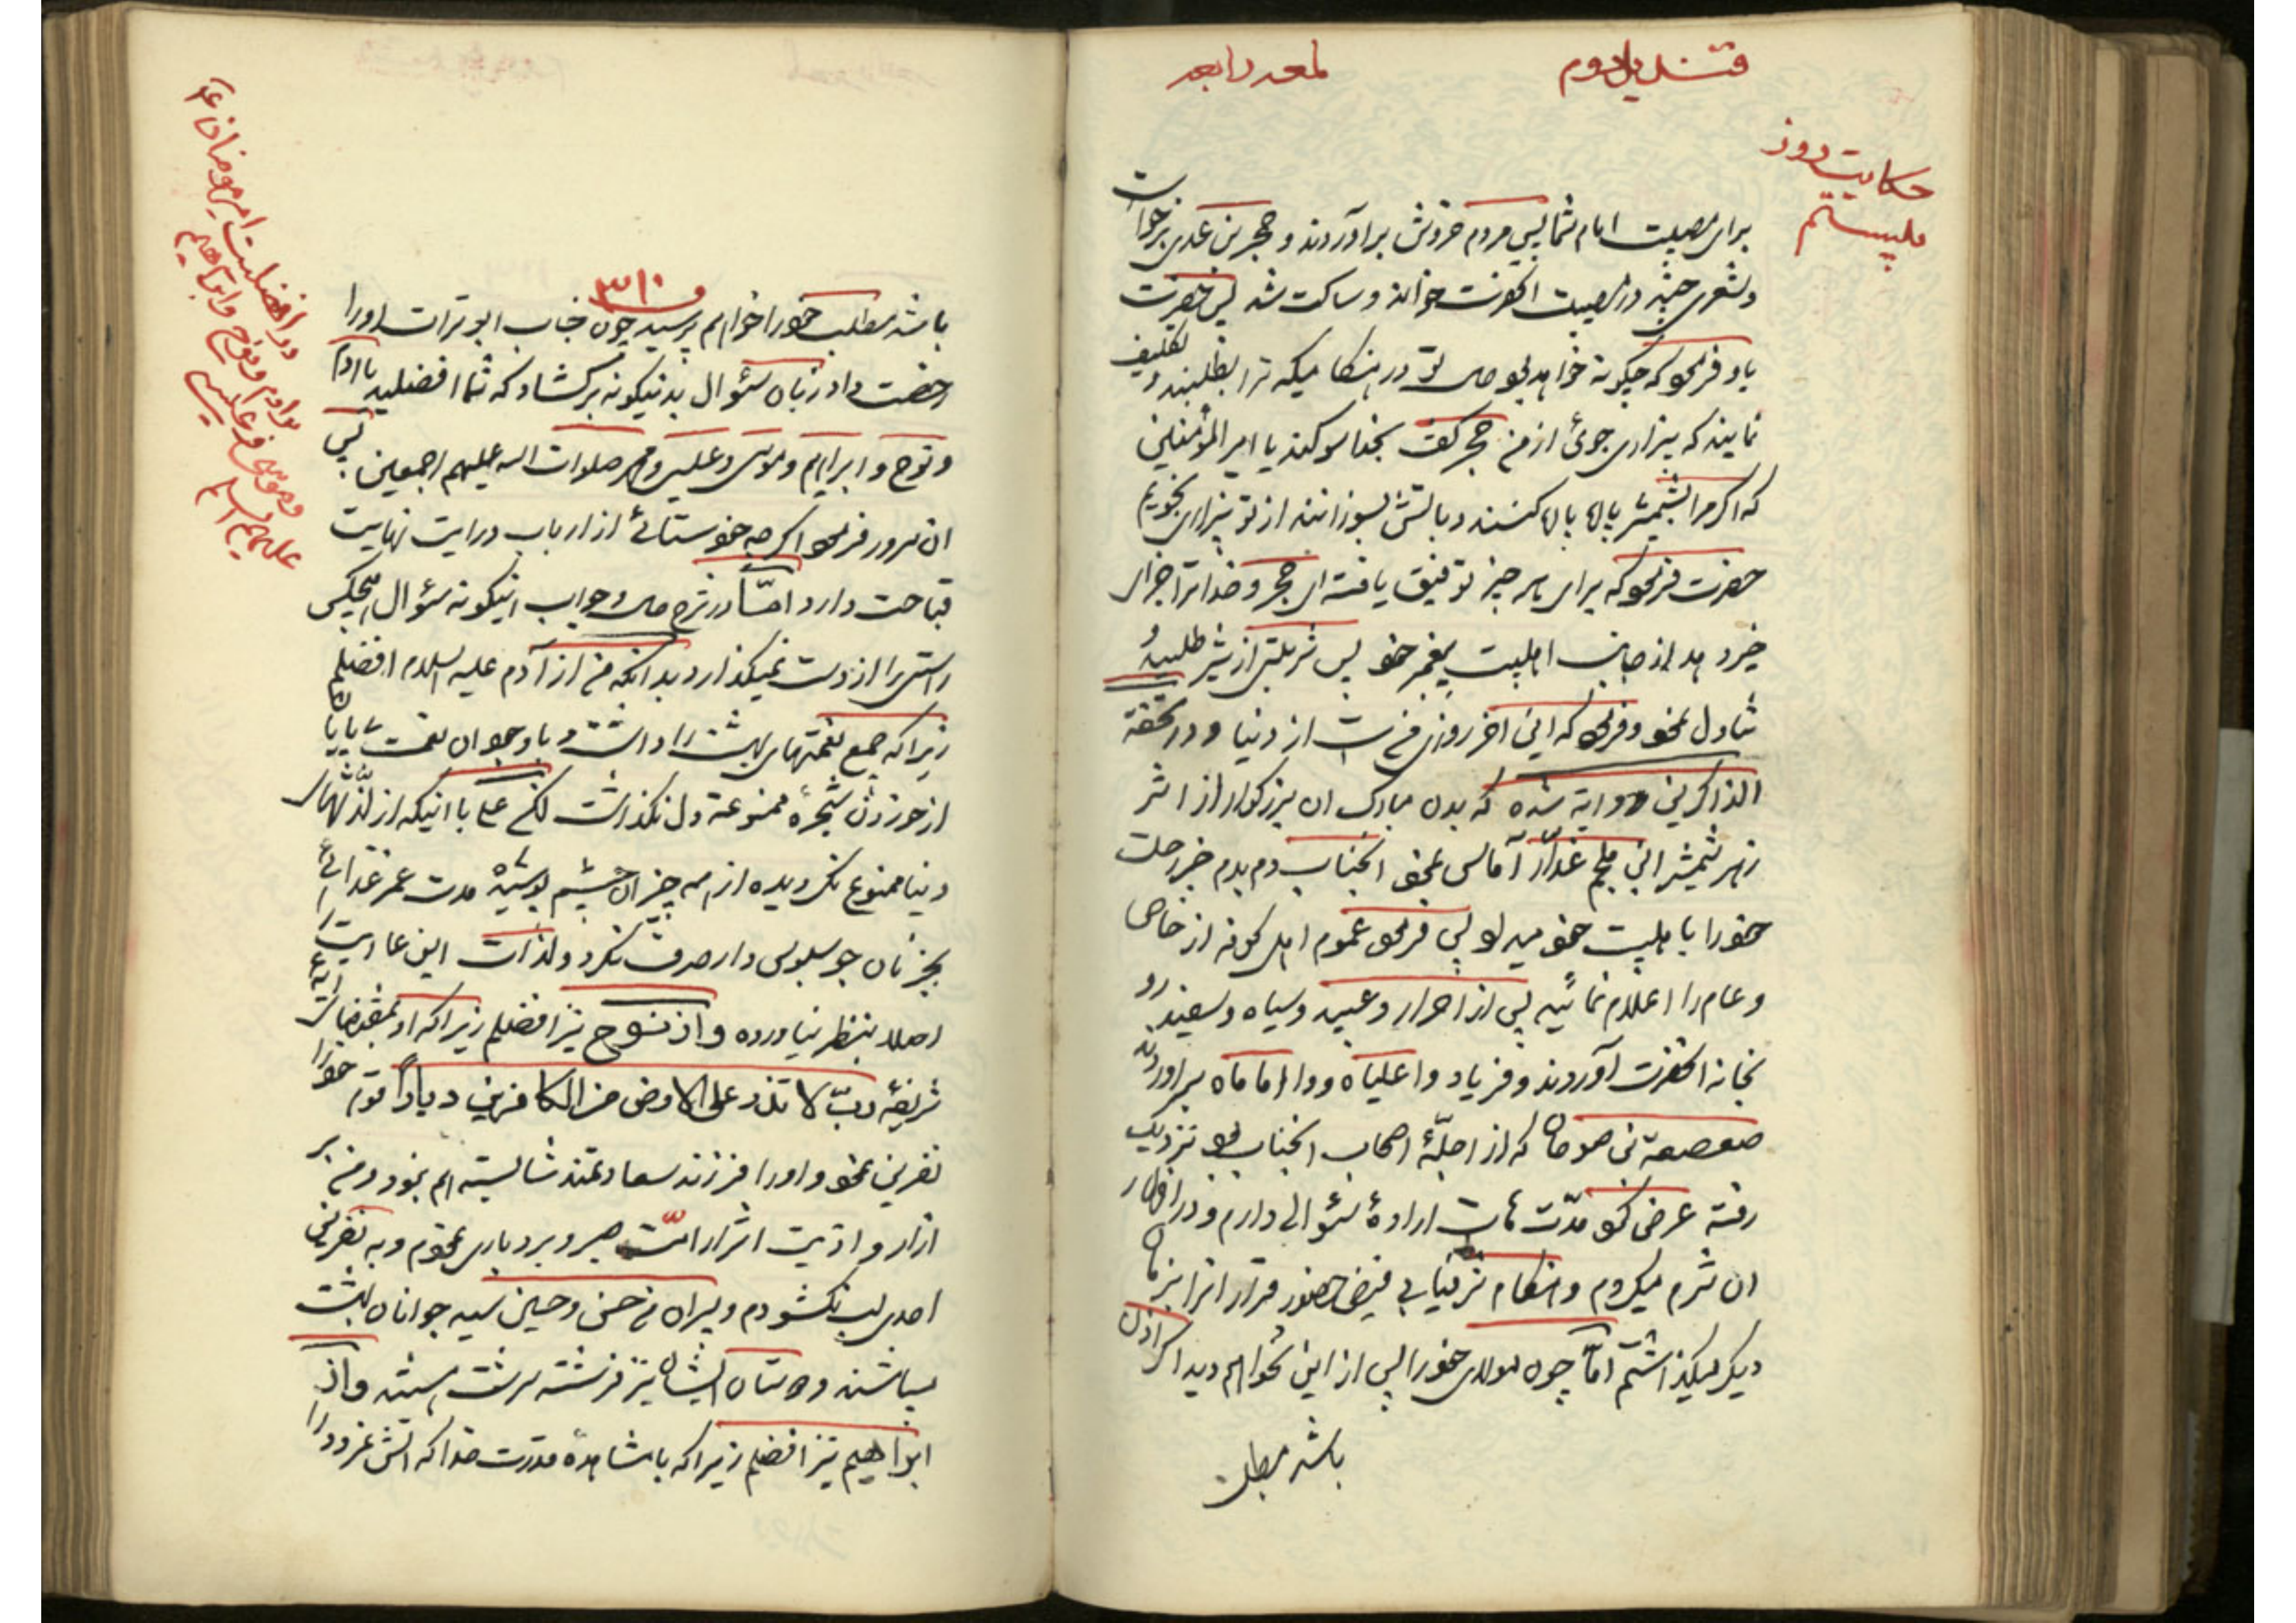 قندیل دوم
لمعه رابعه
حکایت روز
بیستم
برای مصیبت امام شما پس مردم خروش برآوردند و حجر بن عدی برخواست
و شعری چند در مصیبت انحضرت خواند و ساکت شد پس حضرت
باو فرمود که چگونه خواهد بود حال تو در هنگامیکه ترا بطلبند و تکلیف
نمایند که بیزاری جوئی از من حجر گفت بخدا سوگند یا امیر المؤمنین
که اگر مرا بشمشیر پاره پاره کنند و باتش بسوزانند از تو بیزاری نجویم
حضرت فرمود که برای هر چیز توفیق یافته ای حجر و خدا ترا جزای
خیر دهد از جانب اهلبیت پیغمبر خود پس شربتی از شیر طلبیده
تناول نمود و فرمود که این اخر روزی من است از دنیا و در تحفة
الذاکرین روایة شده که بدن مبارک ان بزرگوار از اثر
زهر شمشیر ابن ملجم غدّار آماس نمود انجناب دم بدم خبر رحلت
خود را باهلبیت خود میداد پس فرمود عموم اهل کوفه از خاص
و عام را اعلام نمائید پس از احرار و عبید و سیاه و سفید رو
بخانه انحضرت آوردند و فریاد وا علیاه و وا اماماه براوردند
صعصعة بن صوحان که از اجلّهٔ اصحاب انجناب بود نزدیک
رفته عرض کرد مدّت‌هاست ارادهٔ سئوالی دارم و در اظهار
ان شرم میکردم و هنگام شرفیابی فیض حضور قرار انرا بزمان
دیگر میگذاشتم امّا چون مولای خود را پس از این نخواهم دید اگر اذن
باشد مطلب
۳۱۰
باشد مطلب خود را خواهم پرسید چون جناب ابو تراب او را
رخصت داد زبان سئوال بدینگونه برگشاد که شما افضلید یا ادم
و نوح و ابراهیم و موسی و عیسی و محمد صلوات الله علیهم اجمعین پس
ان سرور فرمود اگر چه خودستائی از ارباب درایت نهایت
قباحت دارد امّا در شرح حال و جواب اینگونه سئوال هیچکس
راستی را از دست نمیگذارد بدانکه من از آدم علیه السلام افضلم
زیرا که جمع نعمتهای بهشت را داشت و با وجود ان نعمت بی پایان
از خوردن شجرهٔ ممنوعه دل نگذاشت لکن علی با اینکه از لذّتهای
دنیا ممنوع نگردیده از همه چیز ان چشم پوشید مدت عمر غذائی
بجز نان جو سبوس دار صرف نکرد و لذات این عاریت را
اصلا بنظر نیاورده و از نوح نیز افضلم زیرا که او بمقتضای ایهٔ
شریفه ربّ لا تذر علی الارض من الکافرین دیاراً قوم خود را
نفرین نمود و او را فرزند سعادتمند شایسته هم نبود و من بر
ازار و اذیت اشرار امّت صبر و بردباری نمودم و به نفرین
احدی لب نگشودم و پسران من حسن و حسین سید جوانان بهشت
میباشند و دوستان ایشان نیز فرشته سرشت هستند و از
ابراهیم نیز افضلم زیرا که با مشاهدهٔ قدرت خدا که اتش نمرود را
در افضلیت امیر مؤمنان علی
بر ادم و نوح و ابراهیم
و موسی و عیسی
علیهم السلام